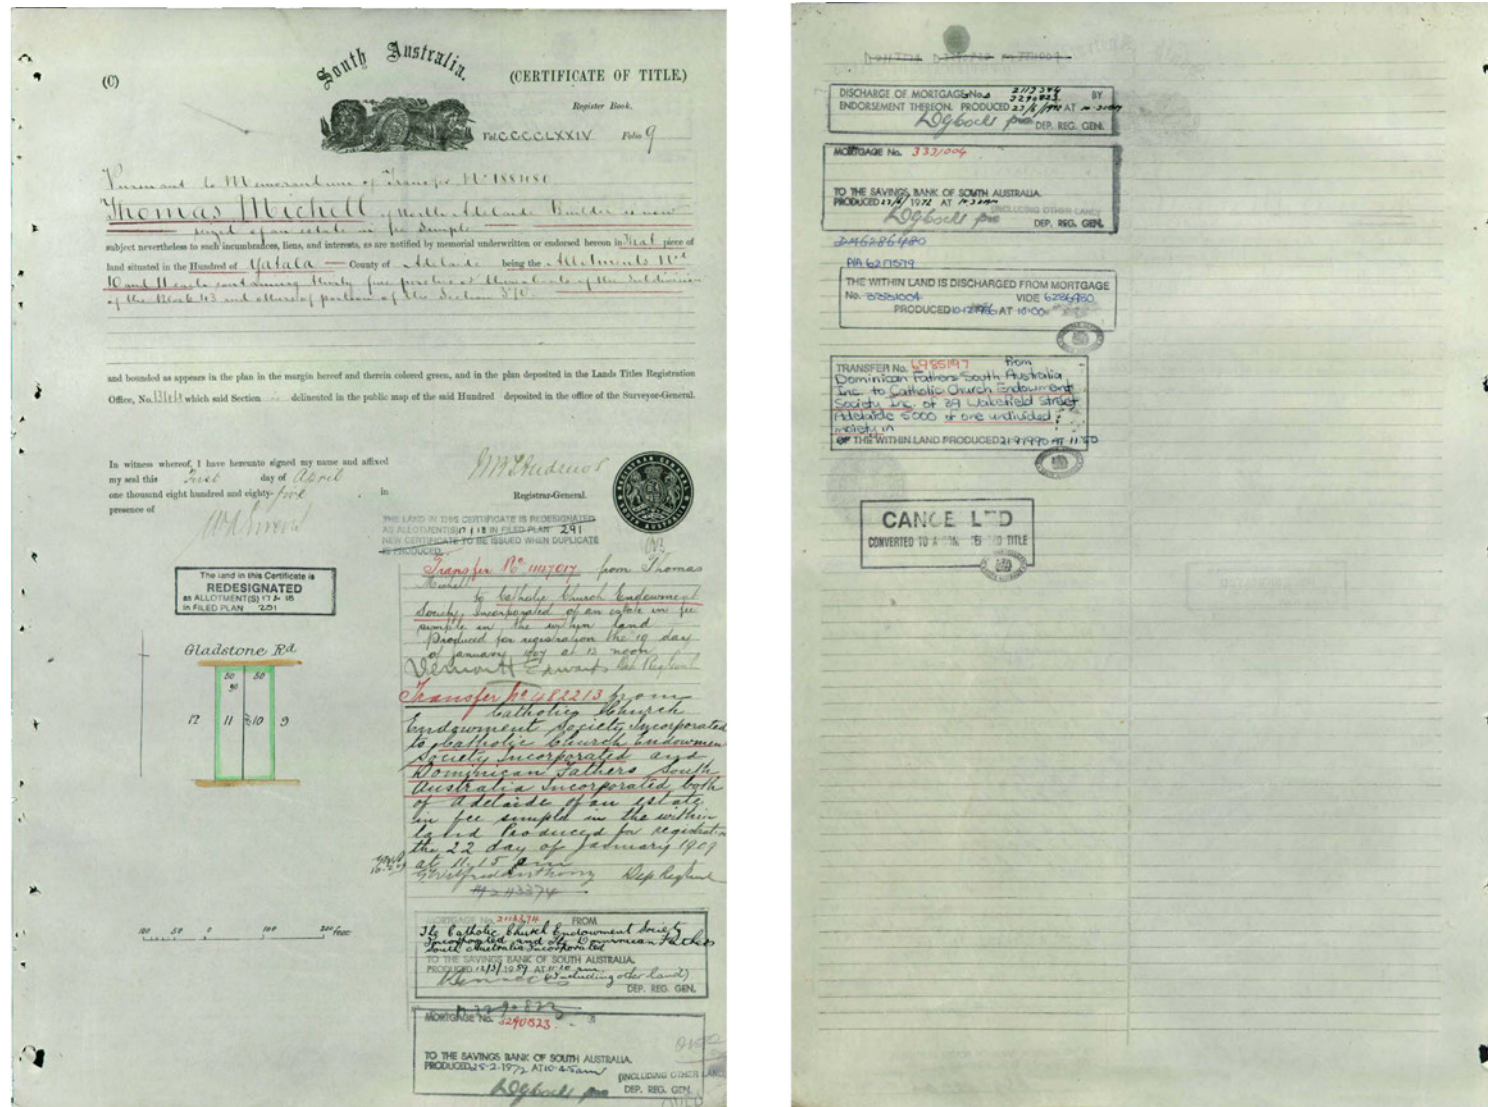 (C)
South Australia.
(CERTIFICATE OF TITLE.)
Register Book,
Vol. CCCCLXXIV Folio 9
Pursuant to Memorandum of Transfer No
Thomas Michell of North Adelaide Builder is now
seized of an estate in fee simple
subject nevertheless to such incumbrances, liens, and interests, as are notified by memorial underwritten or endorsed hereon in that piece of
land situated in the Hundred of Yatala County of Adelaide being the Allotments Nos
10 and 11 each containing thirty five perches or thereabouts of the Subdivision
of the Block 43 and others of portion of the Section
and bounded as appears in the plan in the margin hereof and therein colored green, and in the plan deposited in the Lands Titles Registration
Office, No. which said Section is delineated in the public map of the said Hundred deposited in the office of the Surveyor-General.
In witness whereof, I have hereunto signed my name and affixed
my seal this First day of April
one thousand eight hundred and eighty-five, in
presence of
Registrar-General.
REGISTRAR GENERAL SOUTH AUSTRALIA
THE LAND IN THIS CERTIFICATE IS REDESIGNATED
AS ALLOTMENT(S) 17 & 18 IN FILED PLAN 291
NEW CERTIFICATE TO BE ISSUED WHEN DUPLICATE
IS PRODUCED
The land in this Certificate is
REDESIGNATED
as ALLOTMENT(S) 17 & 18
in FILED PLAN
Gladstone Rd
50 50
12 11 10 9
100 50 0 100 200 FEET
Transfer No from Thomas
Michell
to Catholic Church Endowment
Society Incorporated of an estate in fee
simple in the within land
Produced for registration the 19 day
of January at 12 noon
Vernon H Edwards Dep Reg Genl
Transfer No 482213 from
Catholic Church
Endowment Society Incorporated
to Catholic Church Endowment
Society Incorporated and
Dominican Fathers South
Australia Incorporated both
of Adelaide of an estate
in fee simple in the within
land Produced for registration
the 22 day of January 1909
at 11.15 am
Dep Reg Genl
M 2113374
MORTGAGE No. 2113374 FROM
The Catholic Church Endowment Society
Incorporated and the Dominican Fathers
South Australia Incorporated
TO THE SAVINGS BANK OF SOUTH AUSTRALIA.
PRODUCED 12/3/1959 AT 11.30 am
(Including other land)
DEP. REG. GEN.
M 3290823
MORTGAGE No. 3290823
TO THE SAVINGS BANK OF SOUTH AUSTRALIA.
PRODUCED 25-2-1972 AT 10.45am
(INCLUDING OTHER LAND)
DEP. REG. GEN.
DISCHARGE OF MORTGAGE Nos 2113374 BY
3290823
ENDORSEMENT THEREON. PRODUCED 23/6/1972 AT
DEP. REG. GEN.
MORTGAGE No. 3331004
TO THE SAVINGS BANK OF SOUTH AUSTRALIA.
PRODUCED 23/6/1972 AT
(INCLUDING OTHER LAND)
DEP. REG. GEN.
DM6286480
THE WITHIN LAND IS DISCHARGED FROM MORTGAGE
No. 3331004 VIDE 6286480
PRODUCED 10.12.1986 AT 10:00
TRANSFER No. 6985197 from
Dominican Fathers South Australia
Inc. to Catholic Church Endowment
Society Inc. of 39 Wakefield Street
Adelaide 5000 of one undivided
moiety in
OF THE WITHIN LAND PRODUCED 21.9.1990 AT
CANCELLED
CONVERTED TO A COMPUTERISED TITLE